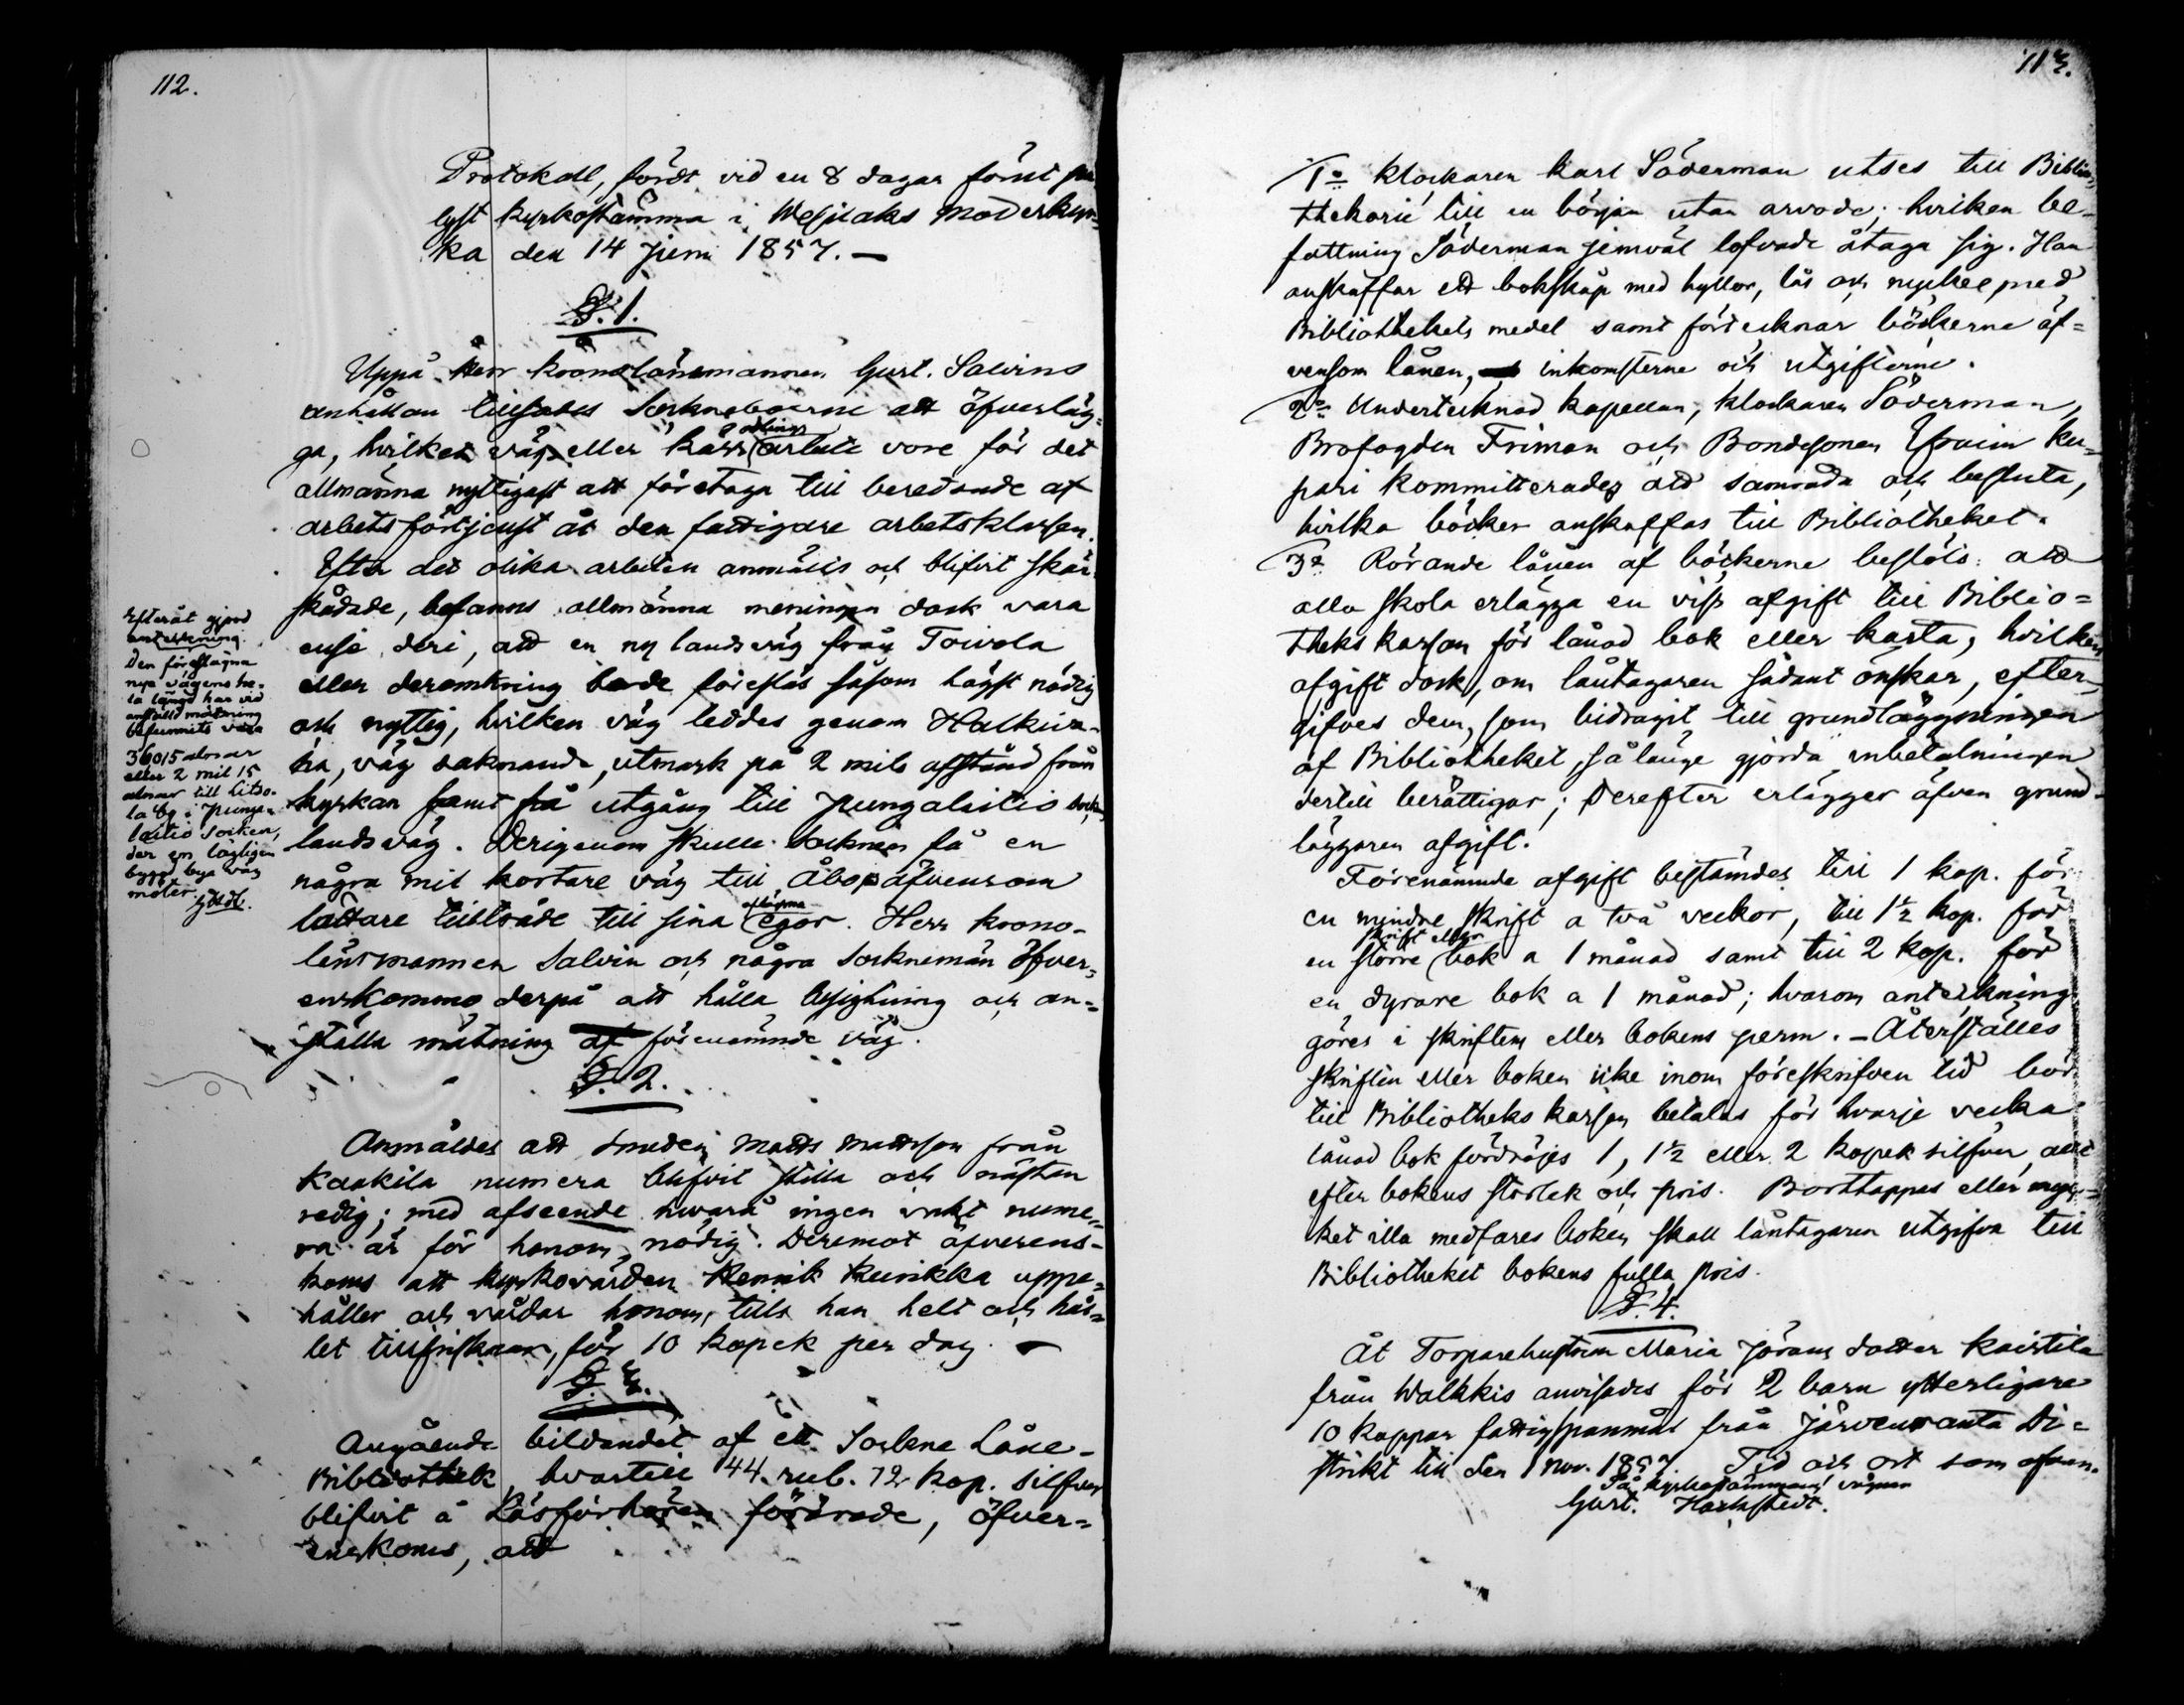 112.
Protokoll, fördt vid en 8 dagar förut på
lyst kyrkostämma i Wesilaks Moderkyr-
ka den 14 Juni 1857. —
§. 1.
Uppå Herr Kronolänsmannen Gust. Salvins
anhållan tillsades Socknaboerne att öfverläg-
ga, hvilket väg eller kärr odlings arbete vore för det
allmänna nyttigast att företaga till beredande af
arbetsförtjenst åt den fattigare arbetsklassen.
Efter det olika arbeten anmälts och blifvit skär
skådade, befanns allmänna meningen dock vara
ense deri, att en ny landsväg från Toivola
eller deromkring borde föreslås såsom högst nödig
och nyttig, hvilken väg leddes genom Halkiva-
ha, väg saknande, utmark på 2 mils afstånd från
kyrkan samt få utgång till Pungalaitio sockn
landsväg. Derigenom skulle Socknen få en
några mil kortare väg till Åbo, äfvensom
lättare tillträde till sina aflägsna egor. Herr Krono-
länsmannen Salvin och några Socknemän öfver-
enskommo derpå att hålla besigtning och an-
ställa mätning af förenämnde väg.
Efteråt gjord
anteckning.
Den föreslagna
nya vägens he-
la längd har vid
anställd mätning
befunnits vara
36015 alnar
eller 2 mil 15
alnar till Litso-
la by i Punga-
laitio socken,
der en lagligen
byggd bya väg
möter.
§. 2.
Anmäldes att Smeden Matts Mattsson från
Kaakila numera blifvit stilla och nästan
redig; med afseende hvarå ingen vakt nume-
ra är för honom nödig. Deremot öfverens-
koms att kyrkovärden Henrik Kurikka uppe-
håller och vårdar honom, tills han helt och hål-
let tillfrisknar, för 10 kopek per dag. —
§. 3.
Angående bildandet af ett Sockne Låne-
Bibliothek, hvartill 44 rub. 72 kop. silfver
blifvit å Läsförhören förärade, öfver-
enskoms, att
113.
1o Klockaren Karl Söderman utses till Biblio-
thekarie till en början utan arvode; hvilken be-
fattning Söderman jemväl lofvade åtaga sig. Han
anskaffar ett bokskåp med hyllor, lås och nyckel med
Bibliothekets medel samt förtecknar böckerne äf-
vensom lånen, inkomsterne och utgifterne.
2o Undertecknad Kapellan, klockaren Söderman,
Brofogden Friman och Bondesonen Efraim Ku-
pari kommitterades att samråda och besluta,
hvilka böcker anskaffas till Bibliotheket.
3o Rörande lånen af böckerne beslöts: att
alla skola erlägga en viss afgift till Biblio-
theks kassan för lånad bok eller karta, hvilken
afgift dock, om låntagaren sådant önskar, efter-
gifves dem, som bidragit till grundläggningen
af Bibliotheket, så länge gjorda inbetalningen
dertill berättigar; Derefter erlägger äfven grund-
läggaren afgift.
Förenämnde afgift bestämdes till 1 kop. för
en mindre skrift a två veckor, till 1 1/2 kop. för
en större skrift eller bok a 1 månad samt till 2 kop. för
en dyrare bok a 1 månad; hvarom anteckning
göres i skriftens eller bokens perm. – Återställes
skriften eller boken icke inom föreskrifven tid bör
till Bibliotheks kassan betalas för hvarje vecka
lånad bok fördröjes 1, 1 1/2 eller 2 kopek silfver, allt
efter bokens storlek och pris. Borttappas eller myc-
ket illa medfares boken skall låntagaren utgifva till
Bibliotheket bokens fulla pris.
§. 4.
Åt Torparehustrun Maria Jöransdotter Kaistila
från Walkkis anvisades för 2 barn ytterligare
10 kappar fattigspanmål från Järvenranta Di-
strikt till den 1 Nov. 1857. Tid och ort som ofvan.
På kyrkostämmans vägnar
Gust.